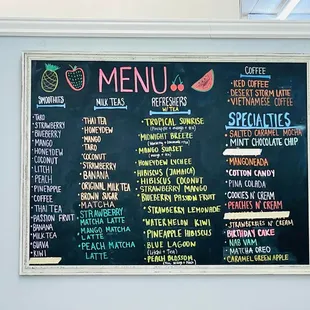 MENU
SMOOTHIES
TARO
STRAWBERRY
BLUEBERRY
MANGO
HONEYDEW
COCONUT
LITCHI
PEACH
PINEAPPLE
COFFEE
THAI TEA
PASSION FRUIT
BANANA
MILK TEA
GUAVA
KIWI
MILK TEAS
THAI TEA
HONEYDEW
MANGO
TARO
COCONUT
STRAWBERRY
BANANA
ORIGINAL MILK TEA
BROWN SUGAR
MATCHA
STRAWBERRY
MATCHA LATTE
MANGO MATCHA
LATTE
PEACH MATCHA
LATTE
REFRESHERS
W/ TEA
TROPICAL SUNRISE
MIDNIGHT BREEZE
MANGO SUNSET
HONEYDEW LYCHEE
HIBISCUS (JAMAICA)
HIBISCUS COCONUT
STRAWBERRY MANGO
BLUEBERRY PASSION FRUIT
STRAWBERRY LEMONADE
WATERMELON KIWI
PINEAPPLE HIBISCUS
BLUE LAGOON
PEACH BLOSSOM
COFFEE
ICED COFFEE
DESERT STORM LATTE
VIETNAMESE COFFEE
SPECIALTIES
SALTED CARAMEL MOCHA
MINT CHOCOLATE CHIP
MANGONEADA
COTTON CANDY
PINA COLADA
COOKIES N' CREAM
PEACHES N' CREAM
STRAWBERRIES N' CREAM
BIRTHDAY CAKE
NAB VAM
MATCHA OREO
CARAMEL GREEN APPLE